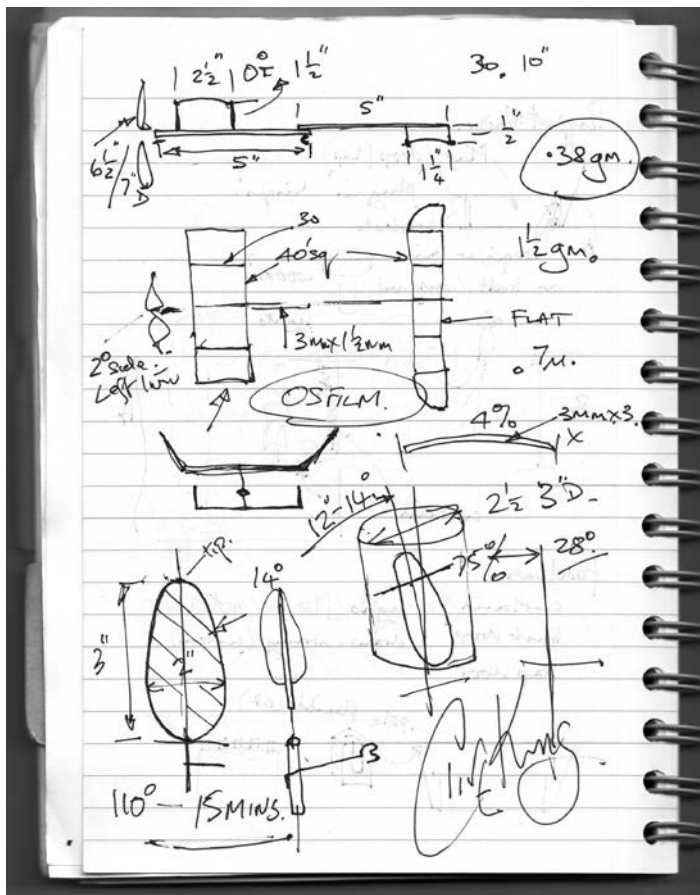 2½" 0° I 1½"
30. 10"
5"
½"
6½"/7" D
5"
1¼"
.38gm.
30
40'sq
1½gm.
3mm x 1½mm
FLAT
2° side.
Left
.7M.
OSFILM.
4%
3mm x 3.
X
12°-14°
2½ 3"D
tip.
14°
75%
28°
3"
2"
B
110° - 15MINS.